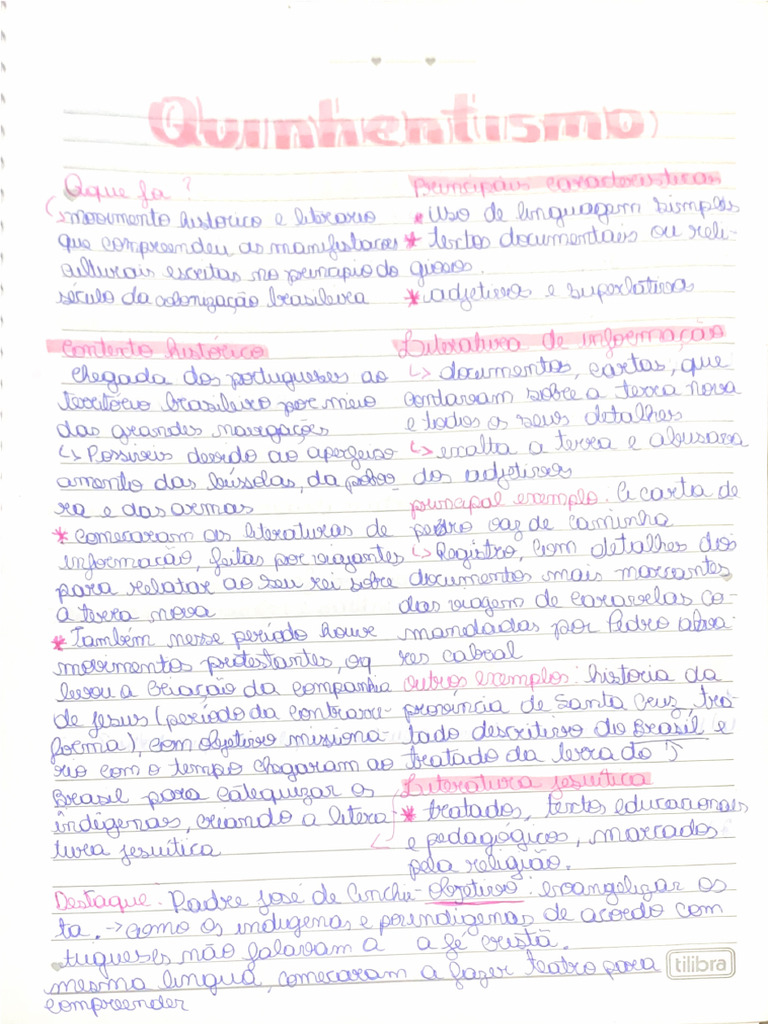 Quinhentismo
Oque foi?
movimento histórico e literario
que compreendeu as manifestacoes
culturais escritas no principio do
século da colonização brasileira
Contexto histórico
chegada dos portugueses ao
território brasileiro por meio
das grandes navegações
↳ Possíveis devido ao aperfeiço
amento das bússolas, da pólvo-
ra e das armas
* começaram as literaturas de
informação, feitas por viajantes
para relatar ao seu rei sobre
a terra nova
* Também nesse período houve
movimentos protestantes, oq
levou a criação da companhia
de Jesus (período da contrarre-
forma), com objetivo missiona-
rio com o tempo chegaram ao
Brasil para catequizar os
indígenas, criando a litera-
tura jesuítica
Principais características
* Uso de linguagem simples
* textos documentais ou reli-
giosos.
* adjetivos e superlativos
Literatura de informação
↳ documentos, cartas, que
contavam sobre a terra nova
e todos os seus detalhes
↳ exalta a terra e abusava
dos adjetivos
principal exemplo: A carta de
pedro vaz de caminha
↳ Registro, com detalhes dos
documentos mais marcantes
das viagem de caravelas co-
mandadas por Pedro alva-
res cabral
outros exemplos: historia da
província de Santa Cruz, tra-
tado descritivo do Brasil e
tratado da terra do
Literatura jesuítica
* tratados, textos educacionais
e pedagógicos, marcados
pela religião.
Destaque: Padre josé de Anchie-
ta. → como os indígenas e por-
tugueses não falavam a
mesma lingua, começaram a fazer teatro para
compreender
objetivo: evangelizar os
indígenas de acordo com
a fé cristã.
tilibra